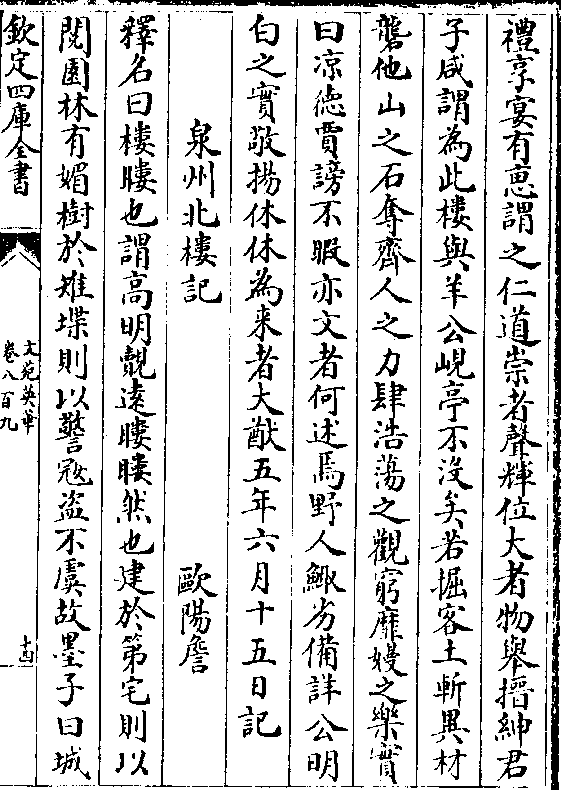 禮享宴有恵謂之仁道崇者聲輝位大者物舉搢紳君
子咸謂為此樓與羊公峴亭不沒矣若掘客土斬異材
礱他山之石奪齊人之力肆浩蕩之觀窮靡嫚之樂實
曰凉德賈謗不暇亦文者何述焉野人鯫劣備詳公明
白之實敬揚休休為来者大猷五年六月十五日記
泉州北樓記 歐陽詹
釋名曰樓䁖也謂高明覿逺䁖䁖然也建於第宅則以
閱園林有媚樹於雉堞則以警冦盗不虞故墨子曰城
欽定四庫全書
文苑英華
卷八百九
十四